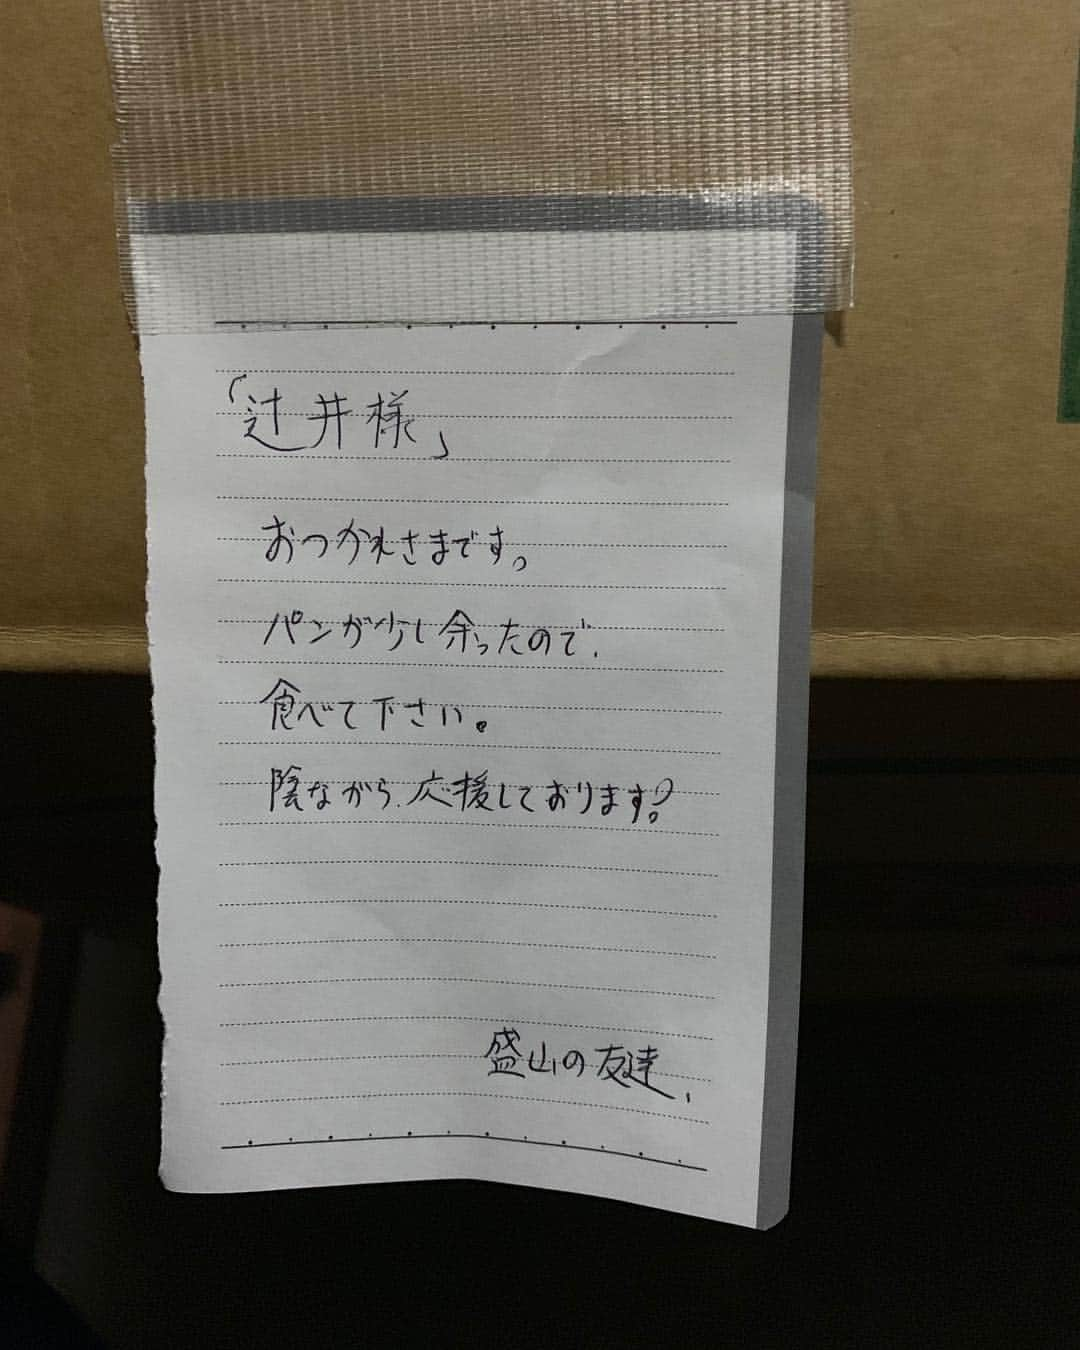 「辻井様」
おつかれさまです。
パンが少し余ったので、
食べて下さい。
陰ながら、応援しております。
盛山の友達、